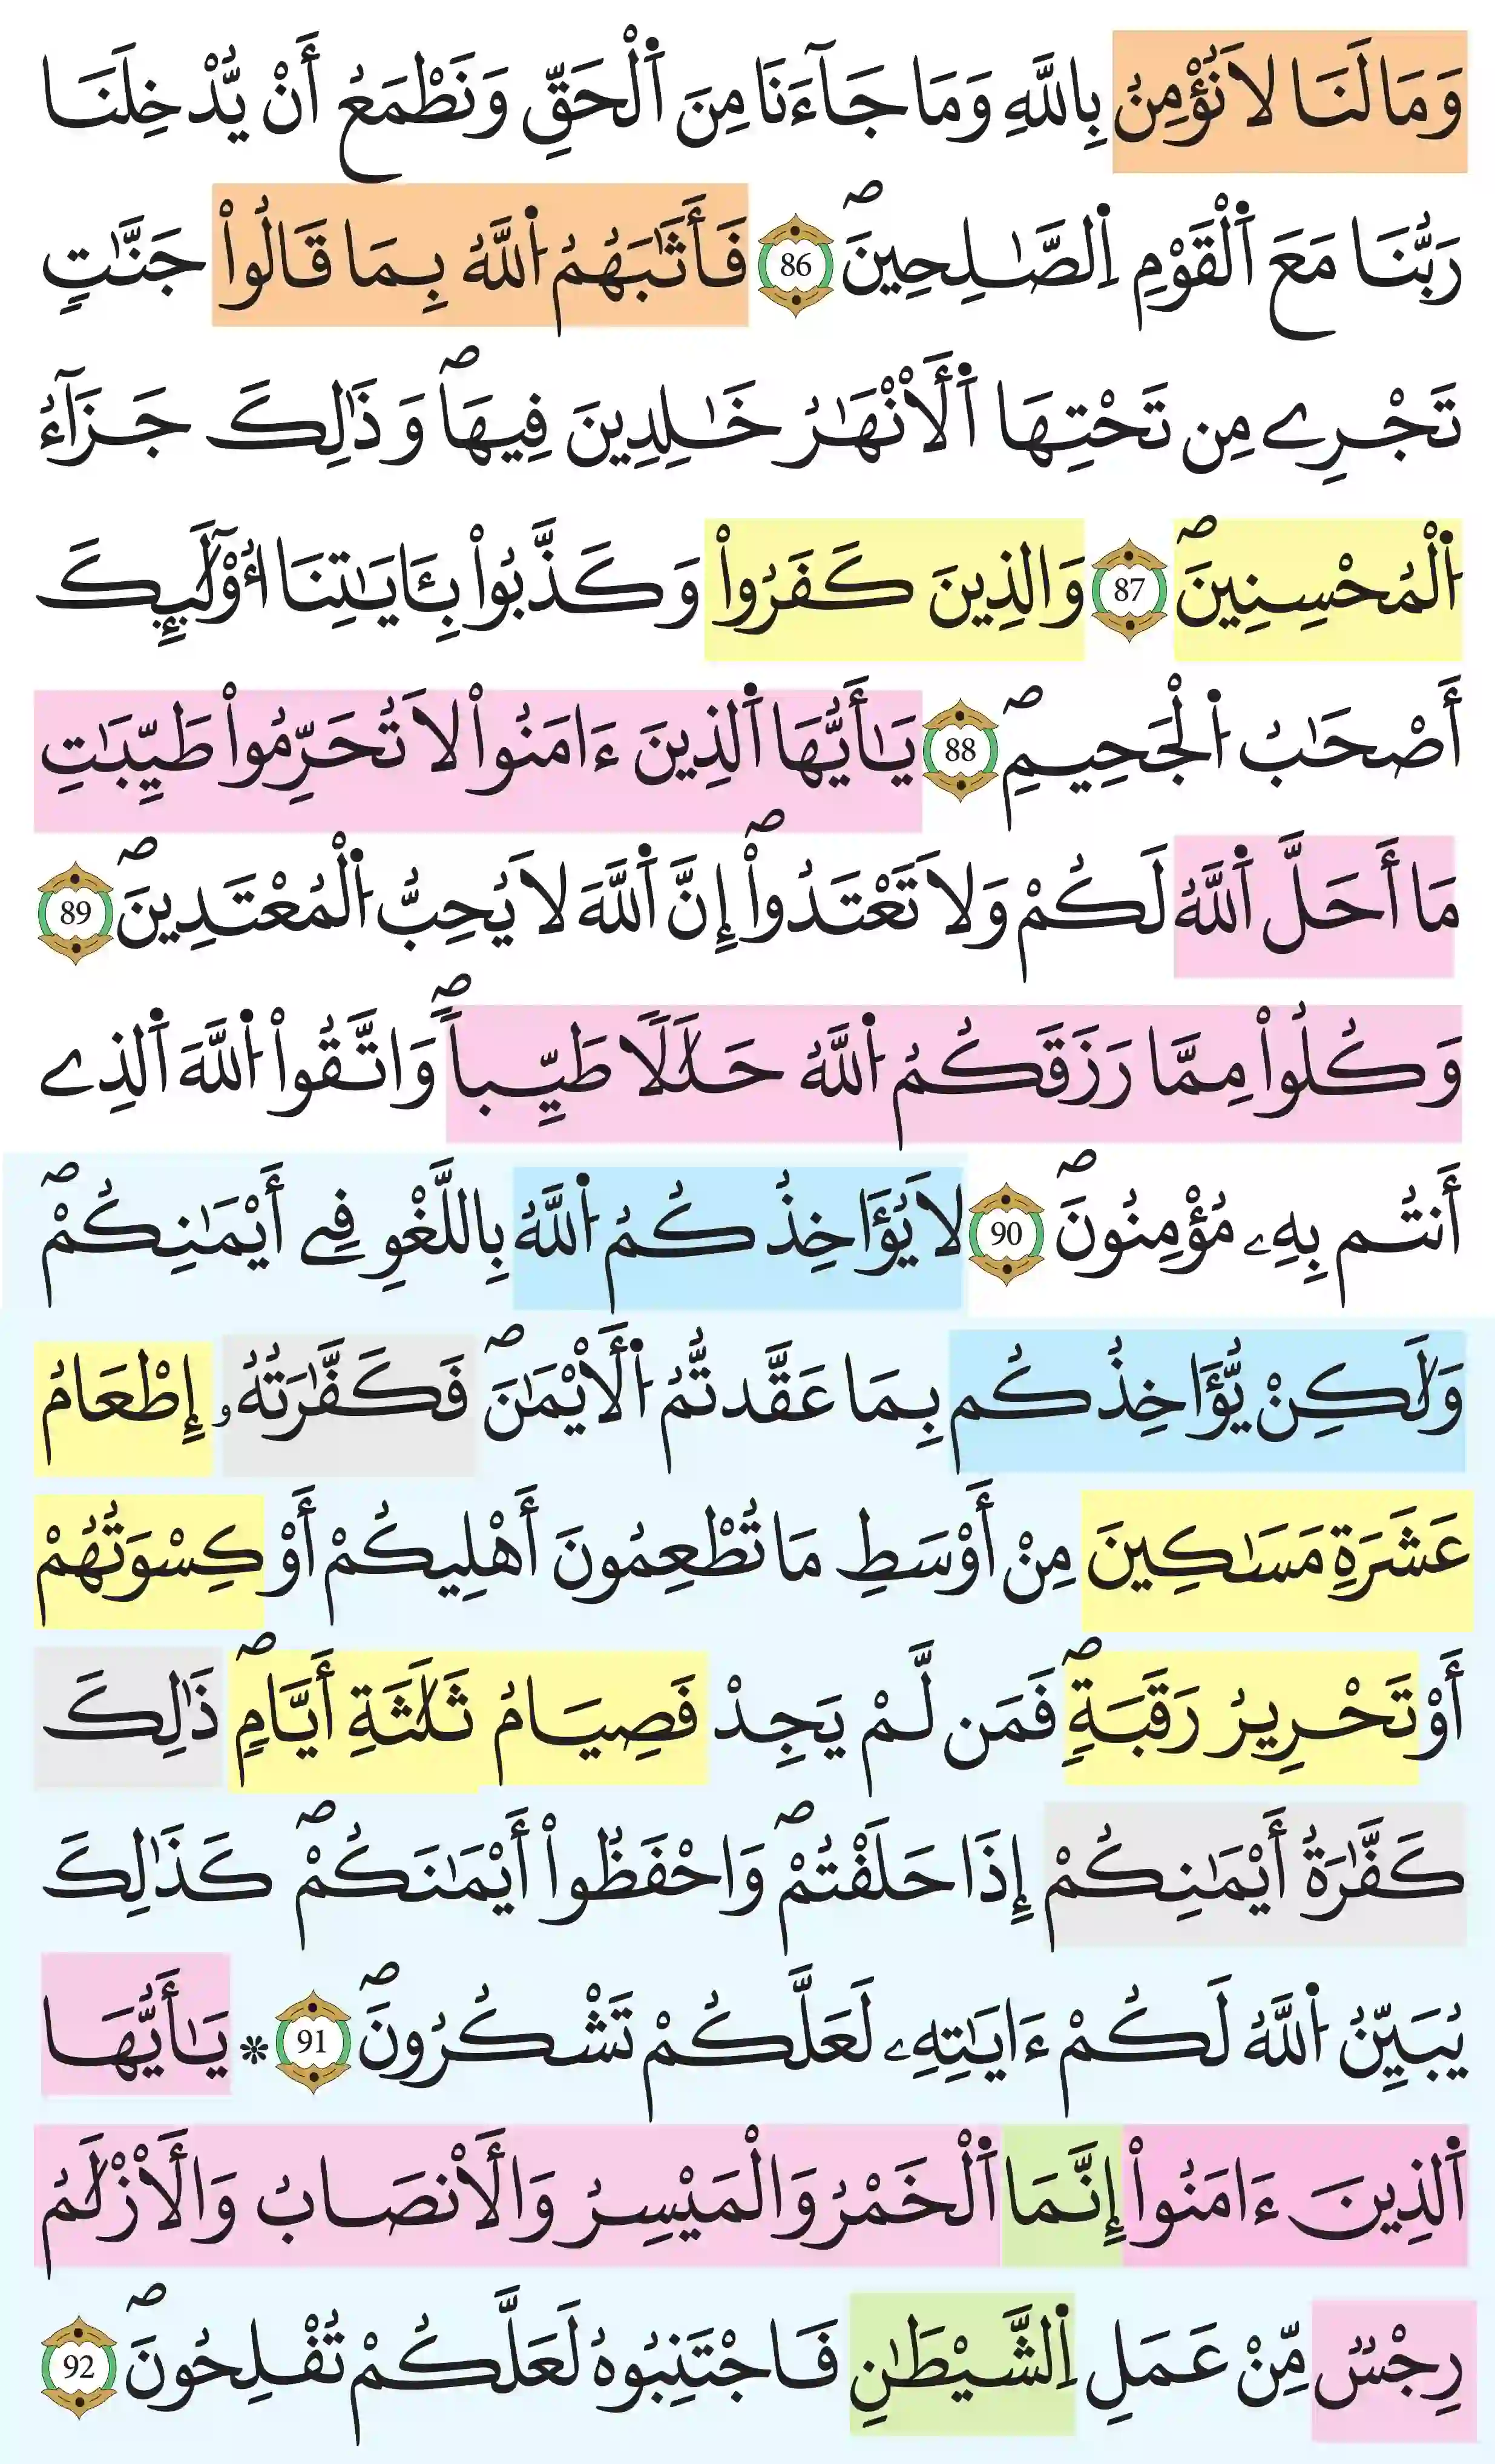 وَمَا لَنَا لَا نُؤْمِنُ بِاللَّهِ وَمَا جَآءَنَا مِنَ اَ۬لْحَقِّ وَنَطْمَعُ أَنْ يُّدْخِلَنَا
رَبُّنَا مَعَ اَ۬لْقَوْمِ اِ۬لصَّٰلِحِينَۖ 86 فَأَثَٰبَهُمُ اُ۬للَّهُ بِمَا قَالُواْ جَنَّٰتٖ
تَجْرِے مِن تَحْتِهَا اَ۬لْأَنْهَٰرُ خَٰلِدِينَ فِيهَاۖ وَذَٰلِكَ جَزَآءُ
اُ۬لْمُحْسِنِينَۖ 87 وَالذِينَ كَفَرُواْ وَكَذَّبُواْ بِـَٔايَٰتِنَا أُوْلَٰٓئِكَ
أَصْحَٰبُ اُ۬لْجَحِيمِۖ 88 يَٰأَيُّهَا اَ۬لذِينَ ءَامَنُواْ لَا تُحَرِّمُواْ طَيِّبَٰتِ
مَا أَحَلَّ اَ۬للَّهُ لَكُمْ وَلَا تَعْتَدُواْۖ إِنَّ اَ۬للَّهَ لَا يُحِبُّ اُ۬لْمُعْتَدِينَۖ 89
وَكُلُواْ مِمَّا رَزَقَكُمُ اُ۬للَّهُ حَلَٰلاٗ طَيِّباٗۖ وَاتَّقُواْ اُ۬للَّهَ اَ۬لذِے
أَنتُم بِهِۦ مُؤْمِنُونَۖ 90 لَا يُؤَاخِذُكُمُ اُ۬للَّهُ بِاللَّغْوِ فِے أَيْمَٰنِكُمْۖ
وَلَٰكِنْ يُّؤَاخِذُكُم بِمَا عَقَّدتُّمُ اُ۬لْأَيْمَٰنَۖ فَكَفَّٰرَتُهُۥ إِطْعَامُ
عَشَرَةِ مَسَٰكِينَ مِنْ أَوْسَطِ مَا تُطْعِمُونَ أَهْلِيكُمْ أَوْ كِسْوَتُهُمْ
أَوْ تَحْرِيرُ رَقَبَةٖۖ فَمَن لَّمْ يَجِدْ فَصِيَامُ ثَلَٰثَةِ أَيَّامٖۖ ذَٰلِكَ
كَفَّٰرَةُ أَيْمَٰنِكُمْ إِذَا حَلَفْتُمْۖ وَاحْفَظُواْ أَيْمَٰنَكُمْۖ كَذَٰلِكَ
يُبَيِّنُ اُ۬للَّهُ لَكُمْ ءَايَٰتِهِۦ لَعَلَّكُمْ تَشْكُرُونَۖ 91 * يَٰأَيُّهَا
اَ۬لذِينَ ءَامَنُواْ إِنَّمَا اَ۬لْخَمْرُ وَالْمَيْسِرُ وَالْأَنْصَابُ وَالْأَزْلَٰمُ
رِجْسٞ مِّنْ عَمَلِ اِ۬لشَّيْطَٰنِ فَاجْتَنِبُوهُ لَعَلَّكُمْ تُفْلِحُونَۖ 92